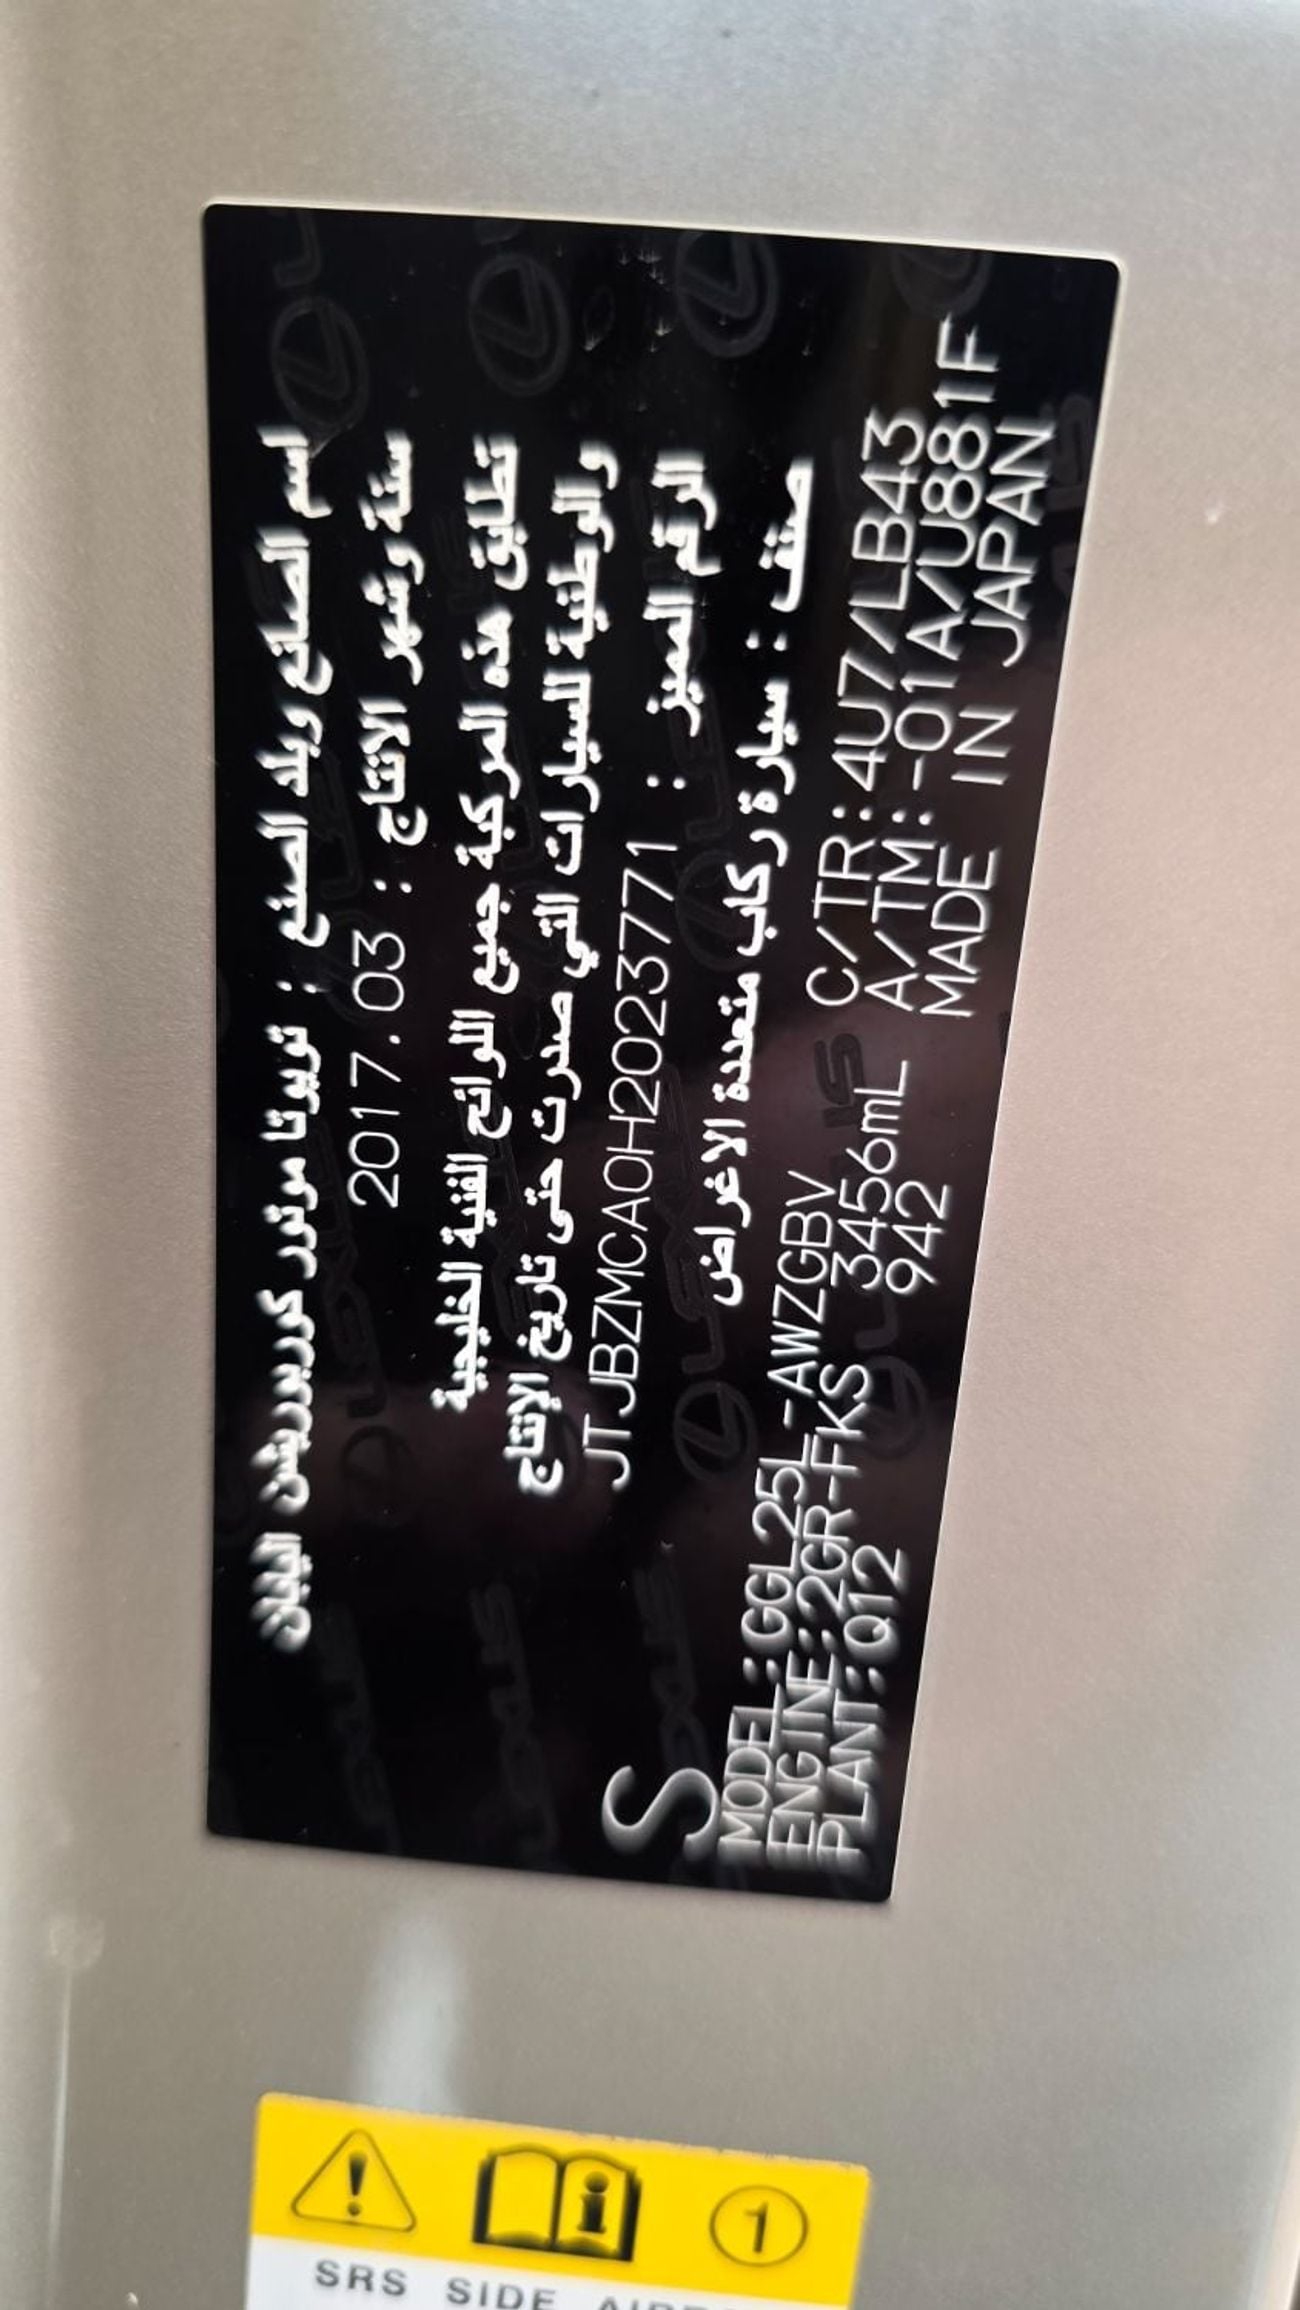 اسم الصانع وبلد الصنع : تويوتا موتور كوربوريشن اليابان
سنة وشهر الانتاج : 2017.03
تطابق هذه المركبة جميع اللوائح الفنية الخليجية
والوطنية للسيارات التي صدرت حتى تاريخ الإنتاج
الرقم المميز : JTJBZMCA0H2023771
صنف : سيارة ركاب متعددة الاغراض
S
MODEL:GGL25L-AWZGBV C/TR:4U7/LB43
ENGINE:2GR-FKS 3456mL A/TM:-01A/U881F
PLANT:Q12 942 MADE IN JAPAN
1
SRS SIDE